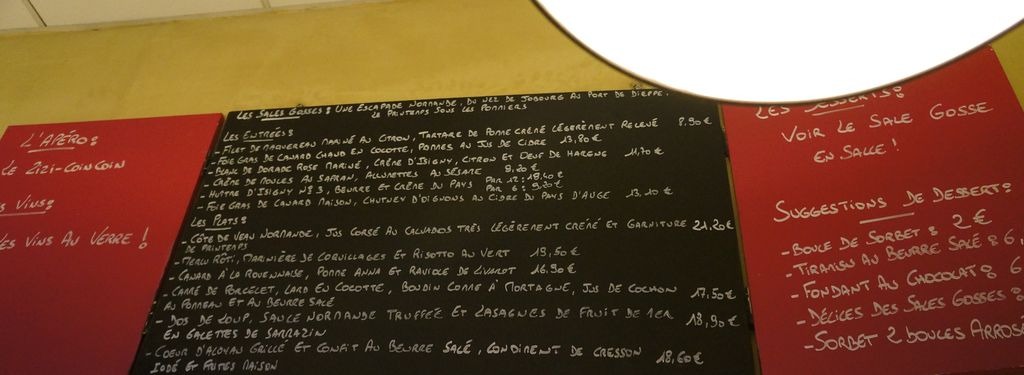 L'APÉRO:
LE ZIZI-COINCOIN
VINS:
LES VINS AU VERRE !
LES SALES GOSSES: UNE ESCAPADE NORMANDE, DU NEZ DE JOBOURG AU PORT DE DIEPPE,
LE PRINTEMPS SOUS LES POMMIERS
LES ENTRÉES:
- FILET DE MAQUEREAU MARINÉ AU CITRON, TARTARE DE POMME CRÉMÉ LÉGÈREMENT RELEVÉ 8,90 €
- FOIE GRAS DE CANARD CHAUD EN COCOTTE, POMMES AU JUS DE CIDRE 13,80 €
- BLANC DE DORADE ROSE MARINÉ, CRÈME D'ISIGNY, CITRON ET OEUF DE HARENG 11,70 €
- CRÈME DE MOULES AU SAFRAN, ALLUMETTES AU SÉSAME 8,20 €
- HUITRE D'ISIGNY N°3, BEURRE ET CRÈME DU PAYS PAR 12: 18,40 € PAR 6: 9,20 €
- FOIE GRAS DE CANARD MAISON, CHUTNEY D'OIGNONS AU CIDRE DU PAYS D'AUGE 13,20 €
LES PLATS:
- CÔTE DE VEAU NORMANDE, JUS CORSÉ AU CALVADOS TRÈS LÉGÈREMENT CRÉMÉ ET GARNITURE 21,20 €
DE PRINTEMPS
- MERLU RÔTI, MARINIÈRE DE COQUILLAGES ET RISOTTO AU VERT 19,50 €
- CANARD À LA ROUENNAISE, POMME ANNA ET RAVIOLE DE LIVAROT 16,90 €
- CARRÉ DE PORCELET, LARD EN COCOTTE, BOUDIN COMME À MORTAGNE, JUS DE COCHON 17,50 €
AU POMMEAU ET AU BEURRE SALÉ
- DOS DE LOUP, SAUCE NORMANDE TRUFFÉE ET LASAGNES DE FRUIT DE MER 18,90 €
EN GALETTES DE SARRAZIN
- COEUR D'ALOYAU GRILLÉ ET CONFIT AU BEURRE SALÉ, CONDIMENT DE CRESSON 18,60 €
IODÉ ET FRITES MAISON
LES DESSERTS:
VOIR LE SALE GOSSE
EN SALLE !
SUGGESTIONS DE DESSERT:
- BOULE DE SORBET: 2 €
- TIRAMISU AU BEURRE SALÉ: 6,
- FONDANT AU CHOCOLAT: 6
- DÉLICES DES SALES GOSSES:
- SORBET 2 BOULES ARROSÉ